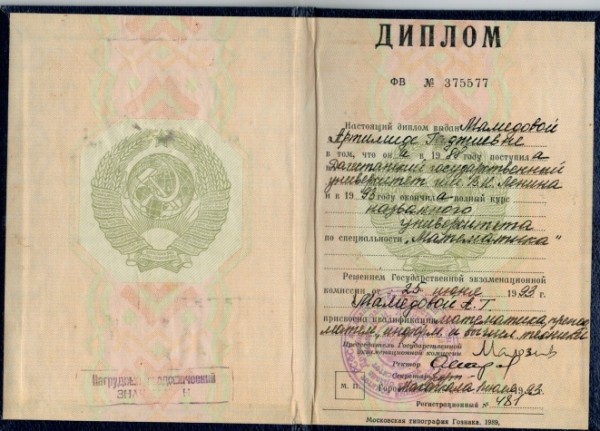 ДИПЛОМ
ФВ № 375577
Настоящий диплом выдан Мамедовой
Артимиде Гаджиевне
в том, что он а в 1988 году поступил а
Дагестанский государственный
университет им. В.И. Ленина
и в 1993 году окончил а полный курс
названного
университета
по специальности „Математика"
Решением Государственной экзаменационной
комиссии от 25 июня 1993 г.
Мамедовой А.Г.
присвоена квалификация математика, препод.
матем., информ. и вычисл. техники
Председатель Государственной
экзаменационной комиссии
Ректор
Секретарь
М. П. Город Махачкала 1 июля 1993
Регистрационный № 481
Московская типография Гознака. 1989.
Нагрудный академический
ЗНАК